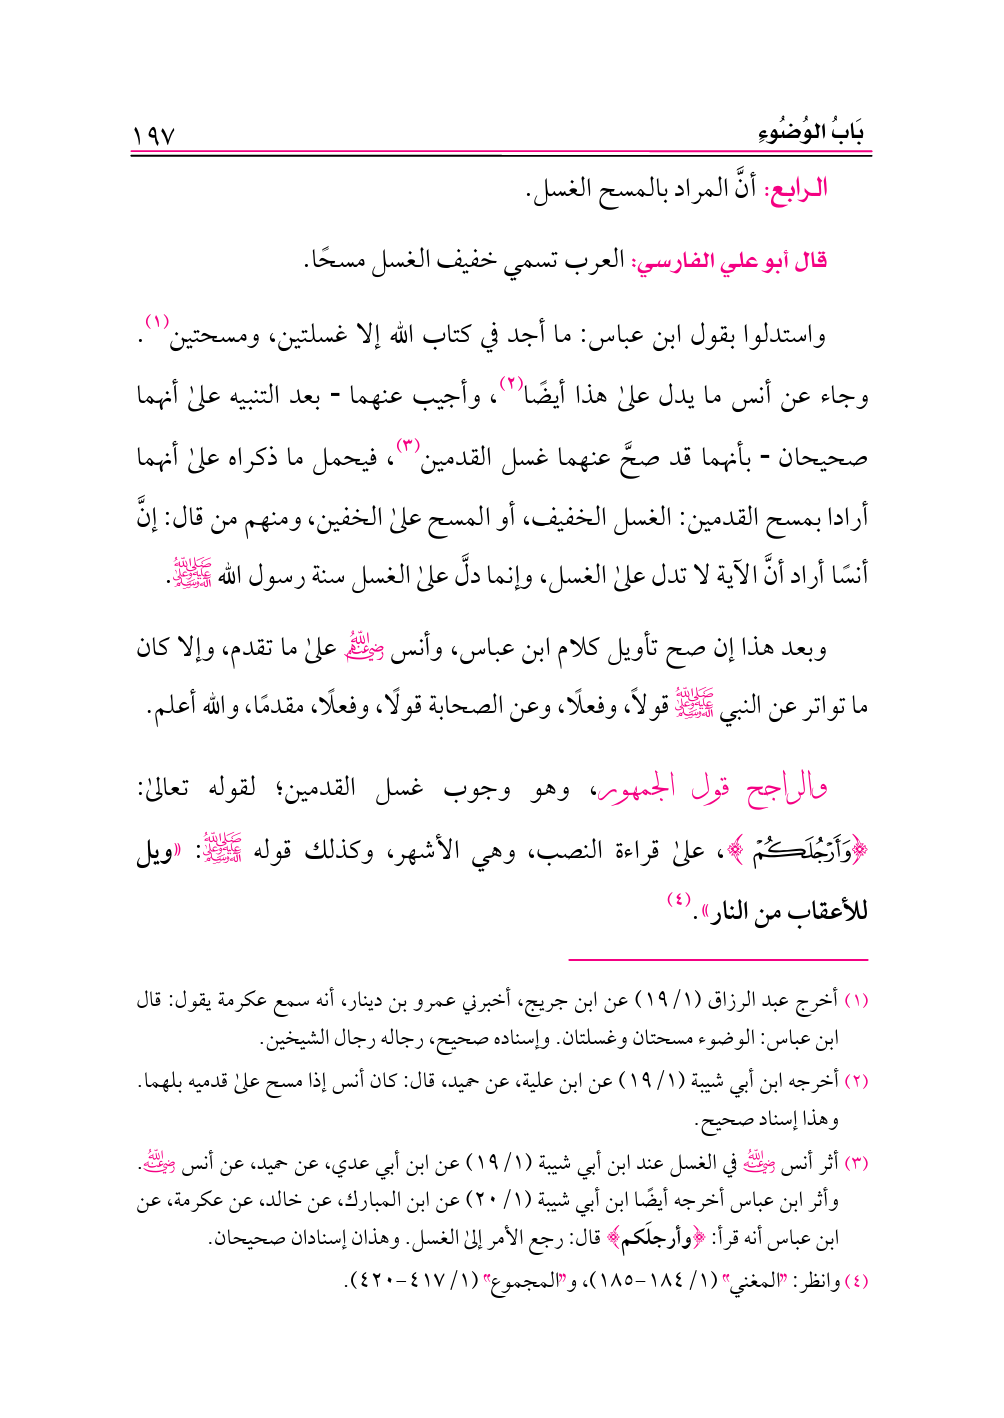 بَابُ الوُضُوءِ
١٩٧
الرابع: أنَّ المراد بالمسح الغسل.
قال أبو علي الفارسي: العرب تسمي خفيف الغسل مسحًا.
واستدلوا بقول ابن عباس: ما أجد في كتاب الله إلا غسلتين، ومسحتين(١).
وجاء عن أنس ما يدل علىٰ هذا أيضًا(٢)، وأجيب عنهما - بعد التنبيه علىٰ أنهما
صحيحان - بأنهما قد صحَّ عنهما غسل القدمين(٣)، فيحمل ما ذكراه علىٰ أنهما
أرادا بمسح القدمين: الغسل الخفيف، أو المسح علىٰ الخفين، ومنهم من قال: إنَّ
أنسًا أراد أنَّ الآية لا تدل علىٰ الغسل، وإنما دلَّ علىٰ الغسل سنة رسول الله ﷺ.
وبعد هذا إن صح تأويل كلام ابن عباس، وأنس رضي الله عنهم علىٰ ما تقدم، وإلا كان
ما تواتر عن النبي ﷺ قولاً، وفعلًا، وعن الصحابة قولًا، وفعلًا، مقدمًا، والله أعلم.
والراجح قول الجمهور، وهو وجوب غسل القدمين؛ لقوله تعالىٰ:
﴿وَأَرْجُلَكُمْ﴾، علىٰ قراءة النصب، وهي الأشهر، وكذلك قوله ﷺ: «ويل
للأعقاب من النار».(٤)
(١) أخرج عبد الرزاق (١/ ١٩) عن ابن جريج، أخبرني عمرو بن دينار، أنه سمع عكرمة يقول: قال
ابن عباس: الوضوء مسحتان وغسلتان. وإسناده صحيح، رجاله رجال الشيخين.
(٢) أخرجه ابن أبي شيبة (١/ ١٩) عن ابن علية، عن حميد، قال: كان أنس إذا مسح علىٰ قدميه بلهما.
وهذا إسناد صحيح.
(٣) أثر أنس رضي الله عنه في الغسل عند ابن أبي شيبة (١/ ١٩) عن ابن أبي عدي، عن حميد، عن أنس رضي الله عنه.
وأثر ابن عباس أخرجه أيضًا ابن أبي شيبة (١/ ٢٠) عن ابن المبارك، عن خالد، عن عكرمة، عن
ابن عباس أنه قرأ: ﴿وأرجلَكم﴾ قال: رجع الأمر إلىٰ الغسل. وهذان إسنادان صحيحان.
(٤) وانظر: "المغني" (١/ ١٨٤-١٨٥)، و"المجموع" (١/ ٤١٧-٤٢٠).